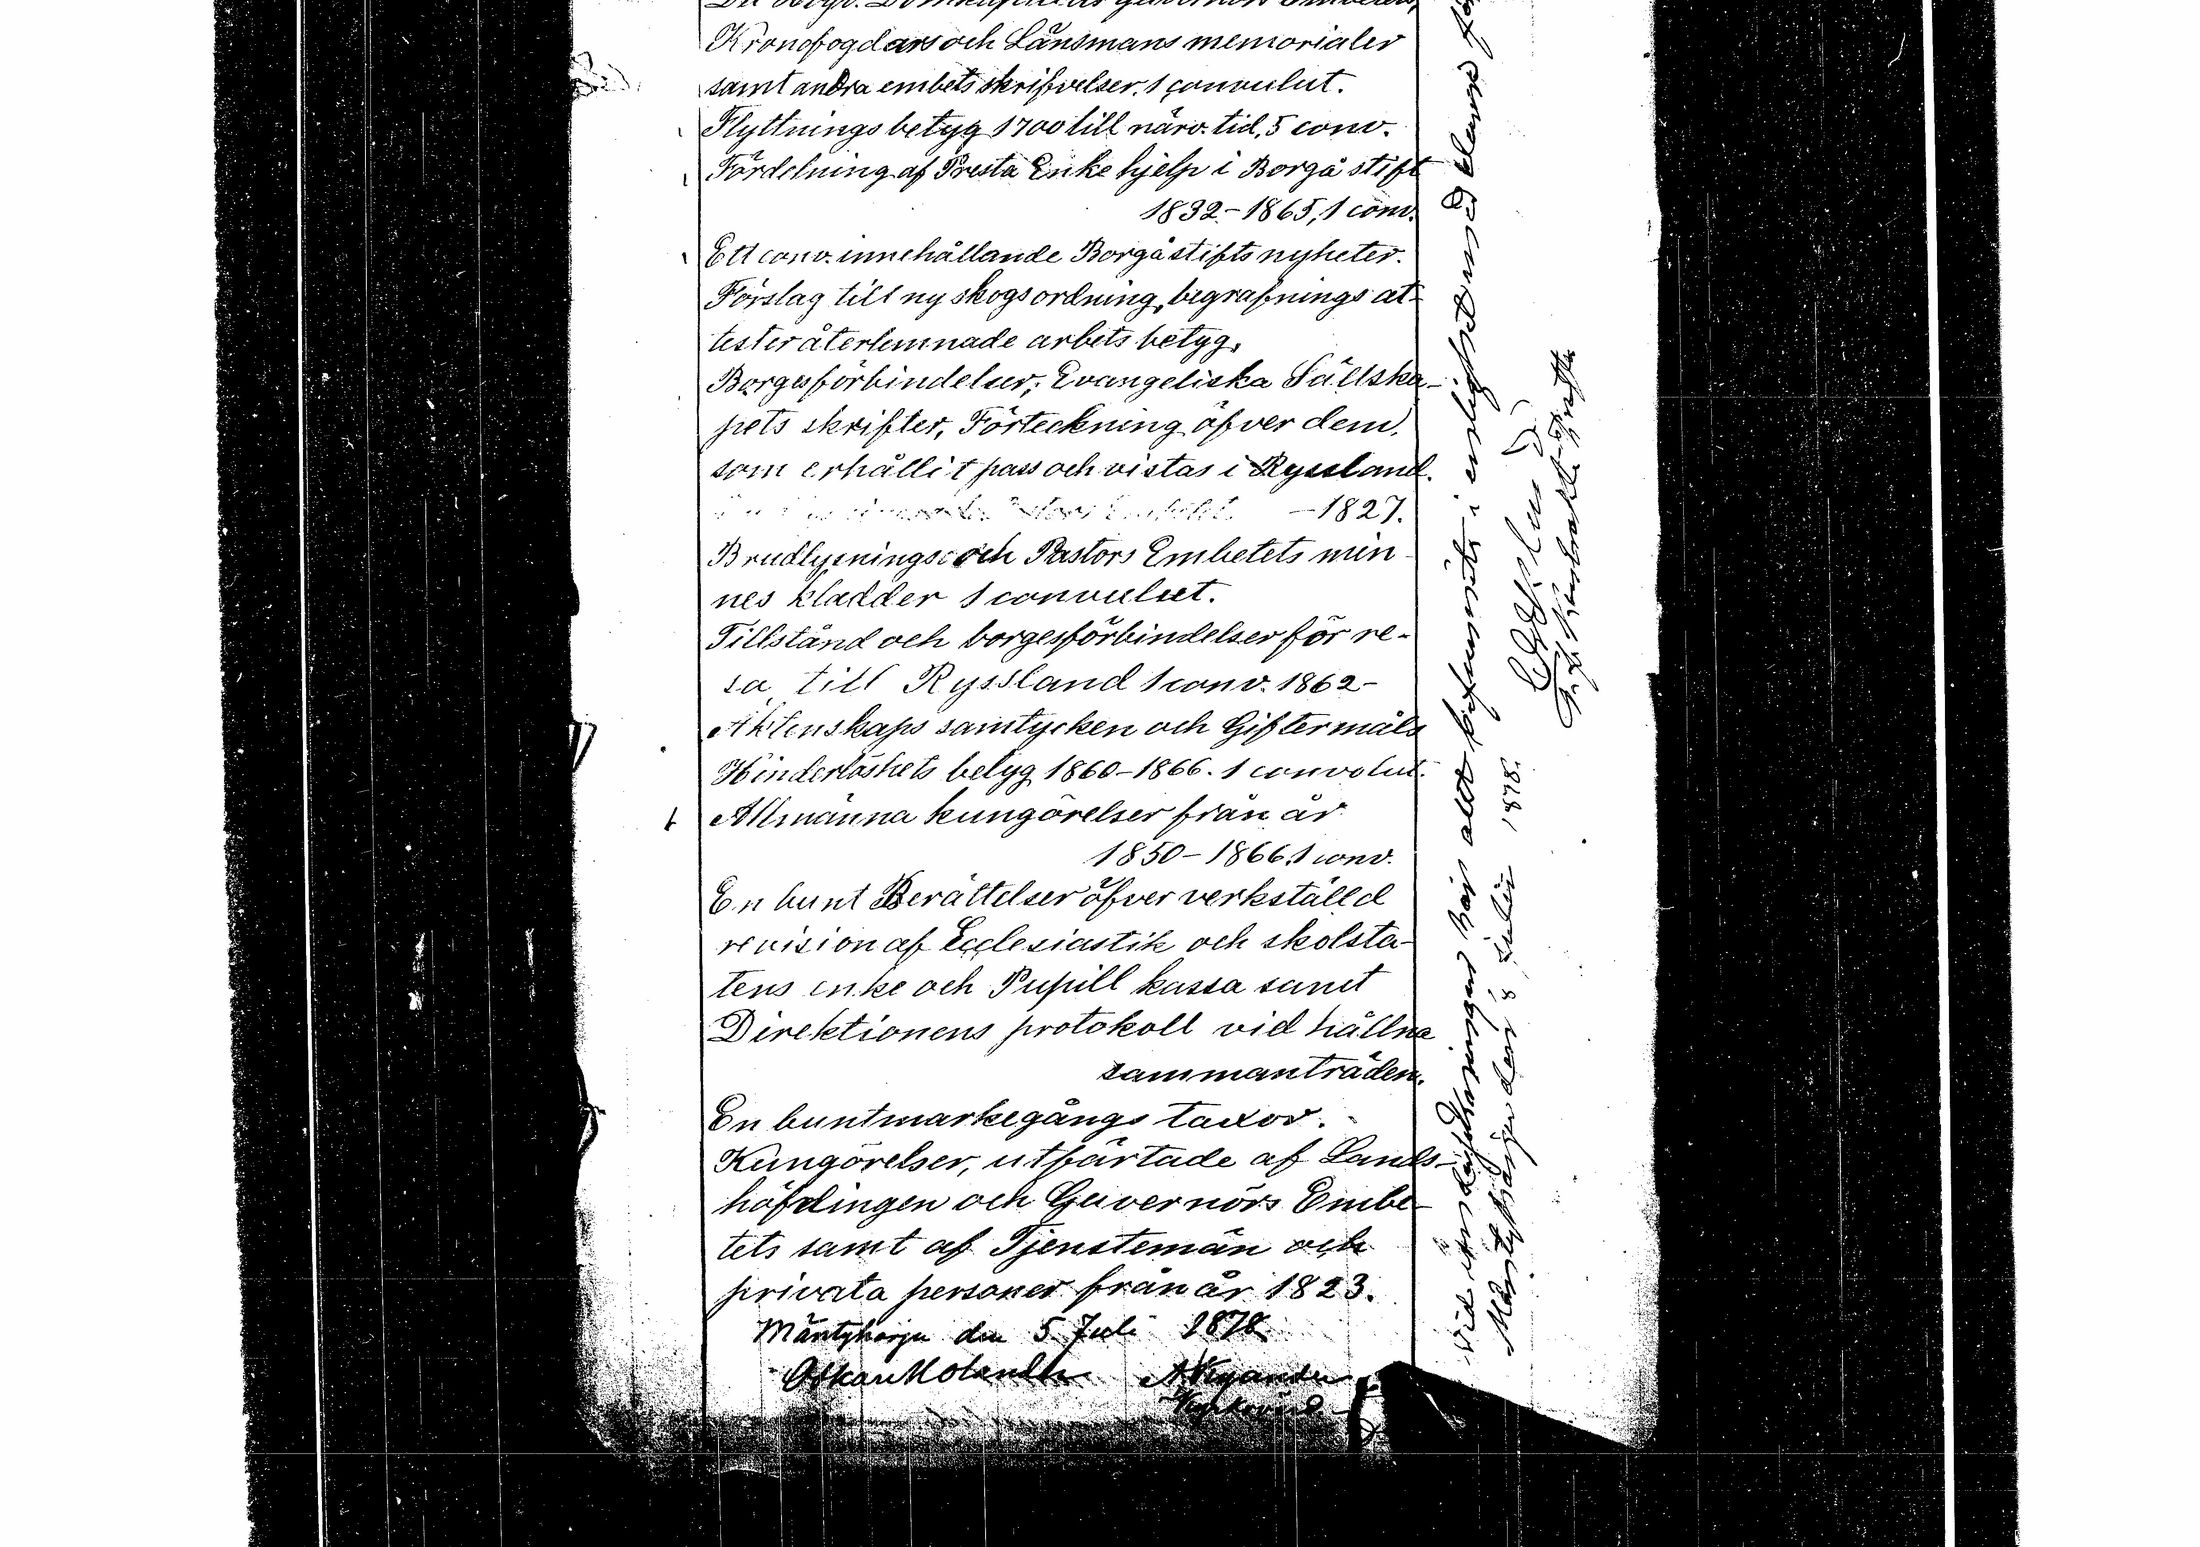 Kronofogdars och Länsmans memorialer
samt andra embets skrifvelser. 1 convulut.
Flyttnings betyg 1700 till närv. tid, 5 conv.
Fördelning af Presta Enke hjelp i Borgå stift
1832–1865, 1 conv.
Ett conv. innehållande Borgå stifts nyheter.
Förslag till ny skogsordning, begrafnings at-
tester återlemnade arbets betyg,
Borgesförbindelser, Evangeliska Sällska-
pets skrifter, Förteckning öfver dem,
som erhållit pass och vistas i Ryssland.
–1827.
Brudlysnings och Pastors Embetets min-
nes kladder 1 convulut.
Tillstånd och borgesförbindelser för re-
sa till Ryssland 1 conv. 1862–
Äktenskaps samtycken och Giftermåls
Hinderlöshets betyg 1860–1866. 1 convolut.
Allmänna kungörelser från år
1850–1866, 1 conv.
En bunt Berättelser öfver verkställd
revision af Ecclesiastik och skolsta-
tens enke och Pupill kassa samt
Direktionens protokoll vid hållna
sammanträden.
En bunt markegångs taxor.
Kungörelser, utfärtade af Lands-
höfdingen och Guvernörs Embe-
tets samt af Tjenstemän och
privata personer från år 1823.
Mäntyharju den 5 Juli 1878
Oskar Molander A Nygander
Vid här allt befunnits i enlighet
Mäntyharju den 8 Julii 1878.